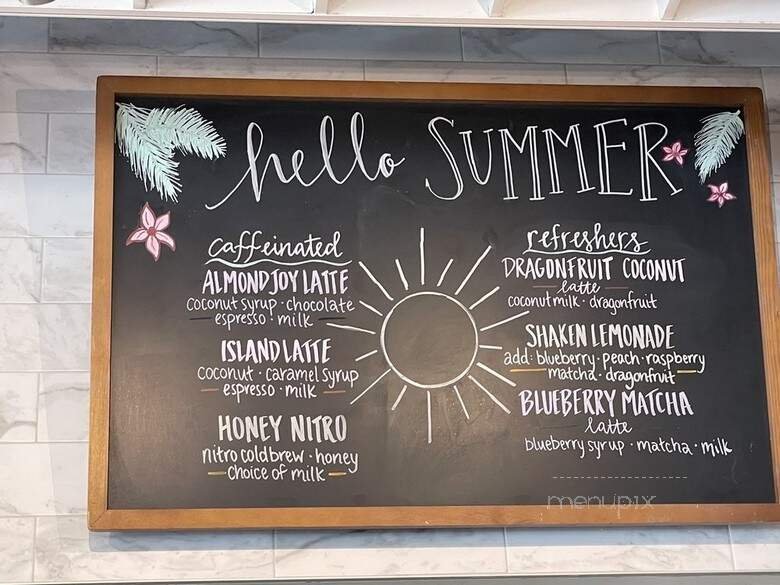 hello SUMMER
caffeinated
ALMOND JOY LATTE
coconut syrup · chocolate
espresso · milk
ISLAND LATTE
coconut · caramel syrup
espresso · milk
HONEY NITRO
nitro cold brew · honey
choice of milk
refreshers
DRAGONFRUIT COCONUT
latte
coconut milk · dragonfruit
SHAKEN LEMONADE
add: blueberry · peach · raspberry
matcha · dragonfruit
BLUEBERRY MATCHA
latte
blueberry syrup · matcha · milk
menupix